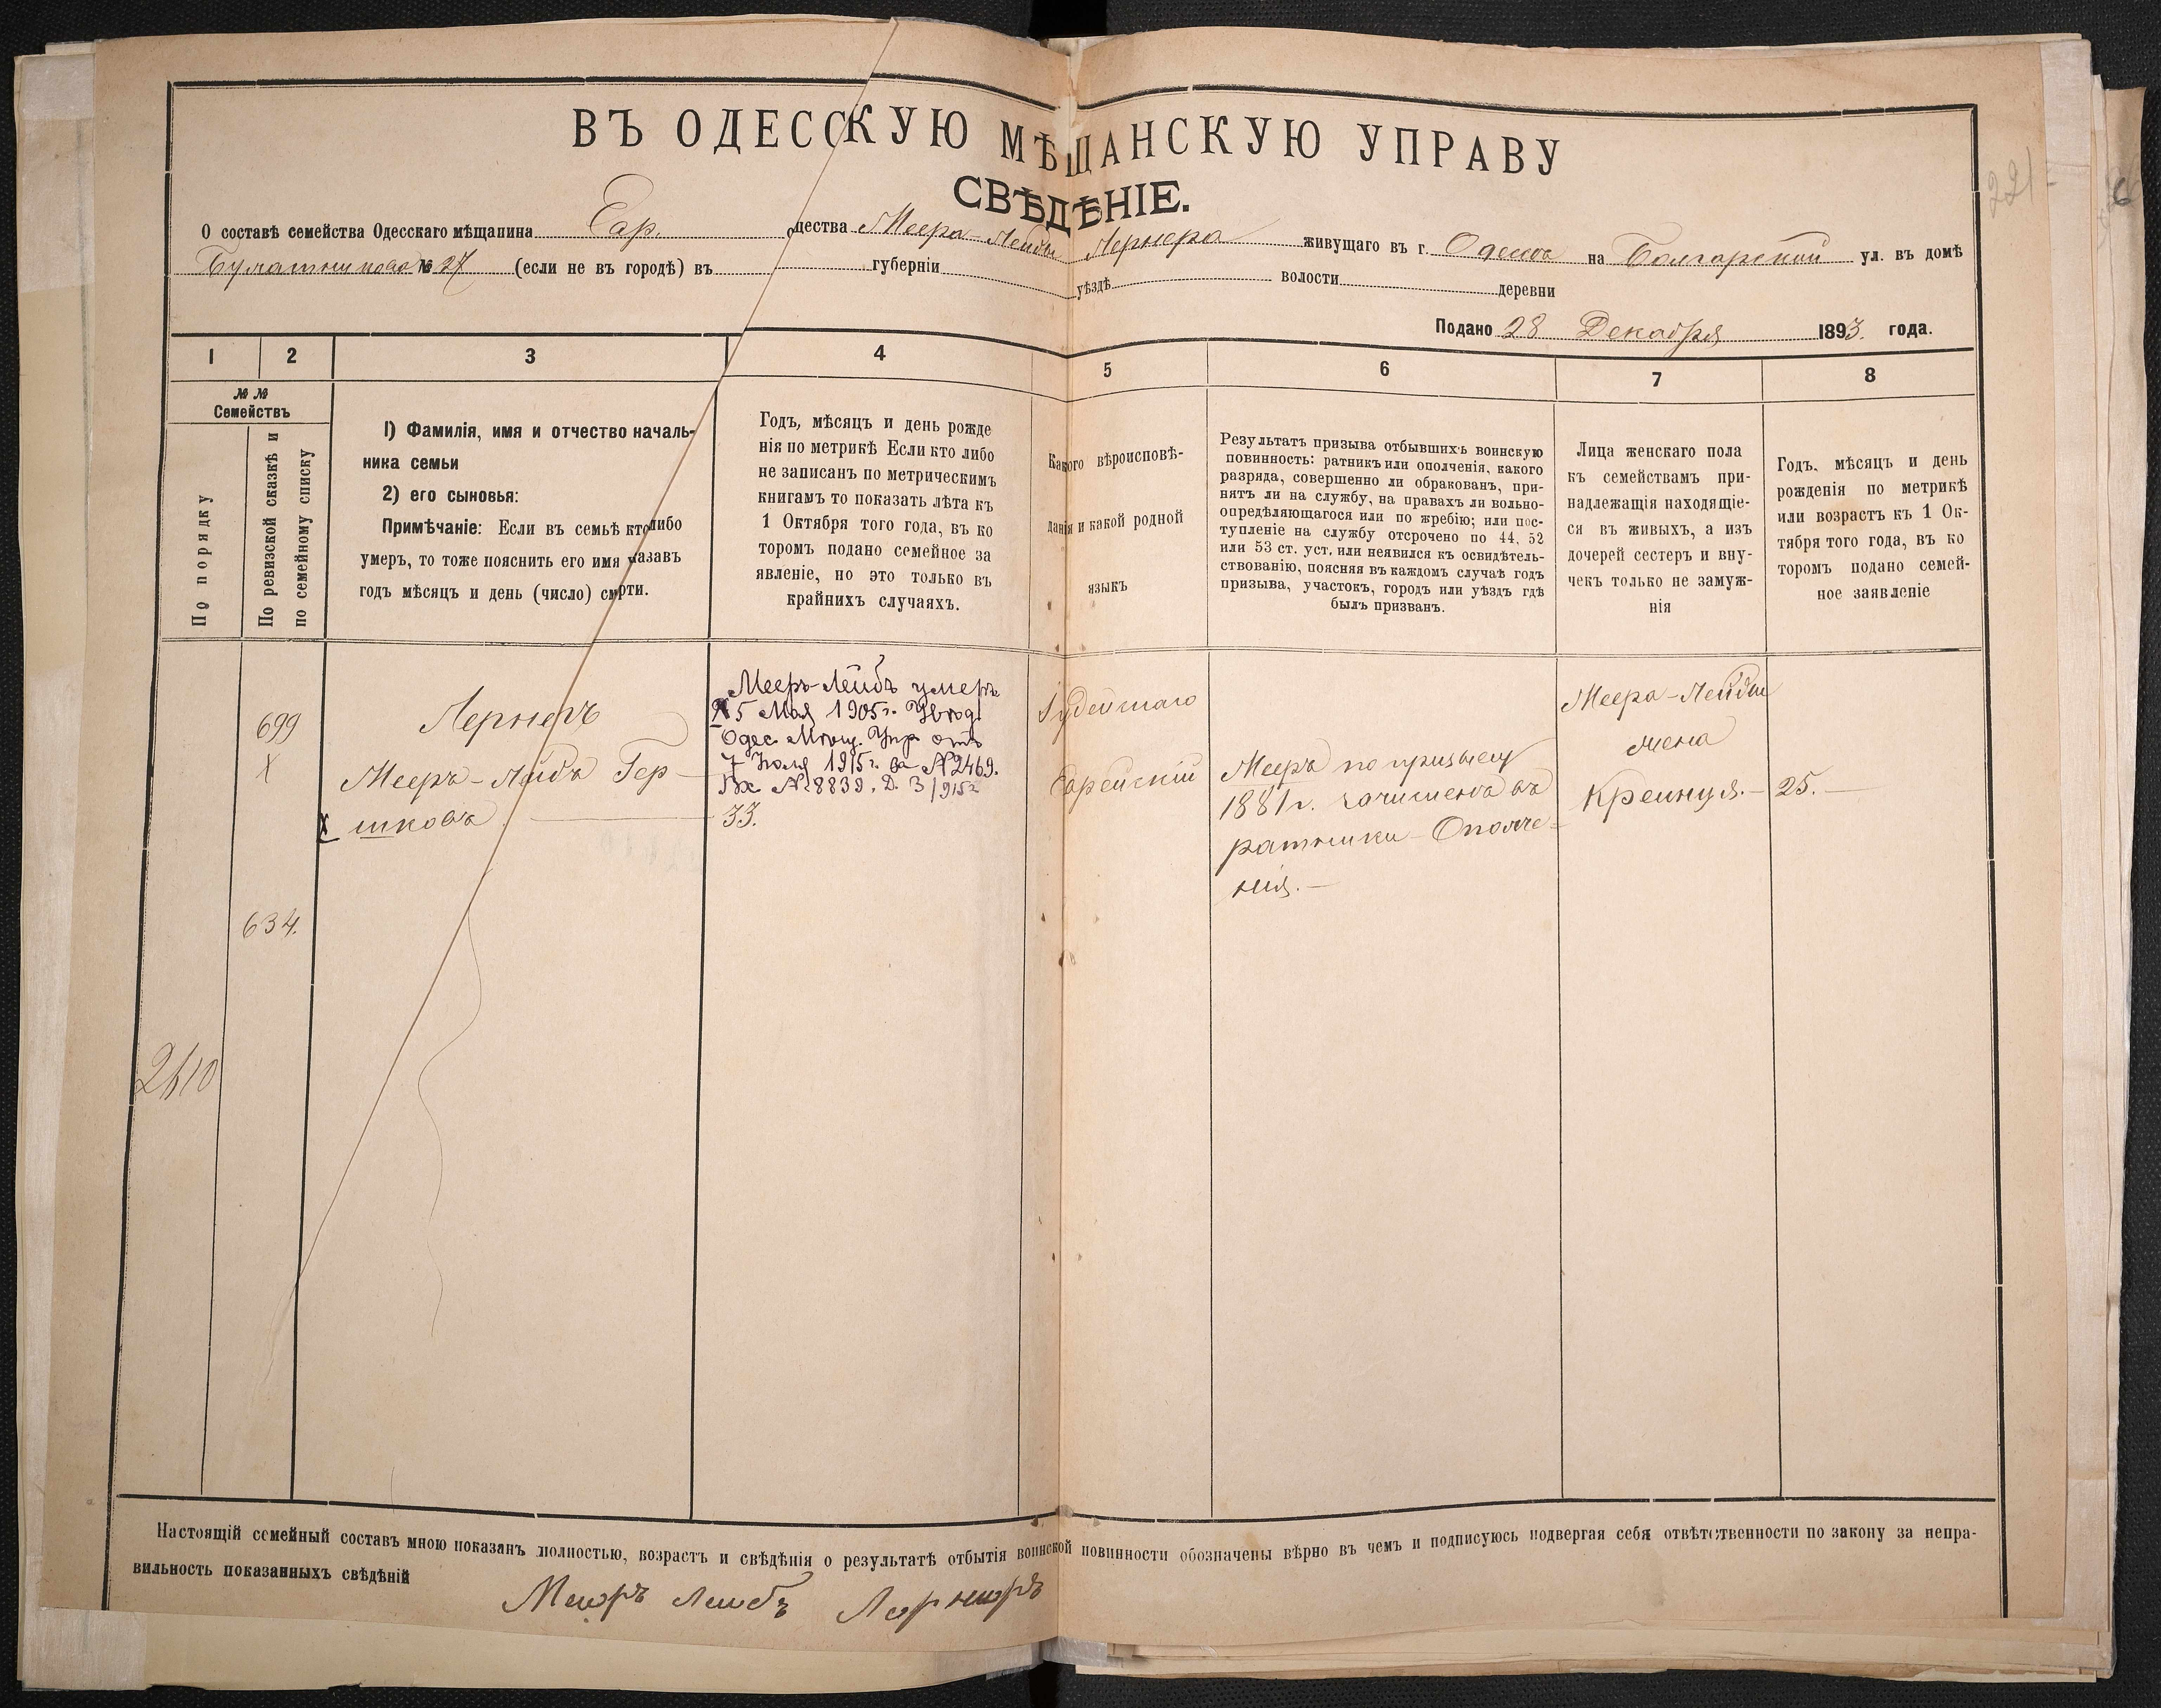 ВЪ ОДЕССКУЮ МѢЩАНСКУЮ УПРАВУ
СВѢДѢНІЕ.
О составѣ семейства Одесскаго мѣщанина Евр. общества Меера-Лейбы Лернера живущаго въ г. Одессѣ на Болгарской ул. въ домѣ
Булатникова № 27 (если не въ городѣ) въ губерніи уѣздѣ волости деревни
Подано 28 Декабря 1893 года.
221
1 2 3 4 5 6 7 8
№ №
Семействъ
По порядку
По ревизской сказкѣ и
по семейному списку
1) Фамилія, имя и отчество началь-
ника семьи
2) его сыновья:
Примѣчаніе: Если въ семьѣ кто либо
умеръ, то тоже пояснить его имя назавъ
годъ мѣсяцъ и день (число) смрти.
Годъ, мѣсяцъ и день рожде
нія по метрикѣ Если кто либо
не записанъ по метрическимъ
книгамъ то показать лѣта къ
1 Октября того года, въ ко
торомъ подано семейное за
явленіе, но это только въ
крайнихъ случаяхъ.
Какого вѣроисповѣ-
данія и какой родной
языкъ
Результатъ призыва отбывшихъ воинскую
повинность: ратникъ или ополченія, какого
разряда, совершенно ли обракованъ, при-
нятъ ли на службу, на правахъ ли вольно-
опредѣляющагося или по жребію; или пос-
тупленіе на службу отсрочено по 44, 52
или 53 ст. уст. или неявился къ освидѣтель-
ствованію, поясняя въ каждомъ случаѣ годъ
призыва, участокъ, городъ или уѣздъ гдѣ
былъ призванъ.
Лица женскаго пола
къ семействамъ при-
надлежащія находящіе-
ся въ живыхъ, а изъ
дочерей сестеръ и вну-
чекъ только не замуж-
нія
Годъ, мѣсяцъ и день
рожденія по метрикѣ
или возрастъ къ 1 Ок-
тября того года, въ ко
торомъ подано семей-
ное заявленіе
699
X
634.
2410
Лернеръ
Мееръ-Лейбъ Гер-
шковъ
Мееръ-Лейбъ умеръ
5 Мая 1905 г. Увѣд.
Одес. Мѣщ. Упр. отъ
7 Іюля 1915 г. за № 2469.
Вх № 8839. Д. 3/915 г.
33.
Іудейскаго
Еврейскій
Мееръ по призыву
1881 г. зачисленъ въ
ратники Ополче-
нія.
Меера-Лейбы
жена
Крейнуля. 25.
Настоящій семейный составъ мною показанъ полностью, возрастъ и свѣдѣнія о результатѣ отбытія воинской повинности обозначены вѣрно въ чемъ и подписуюсь подвергая себя отвѣтственности по закону за непра-
вильность показанныхъ свѣдѣній
Меоръ Леибъ Лернеръ